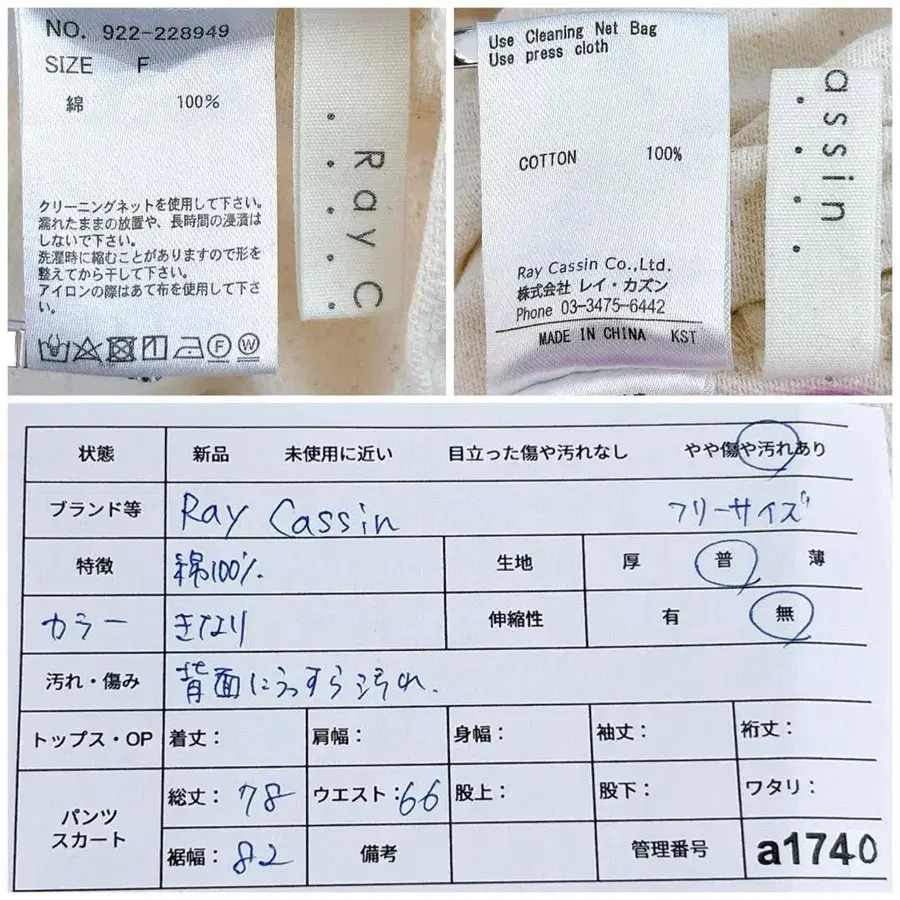 NO. 922-228949
SIZE F
綿 100%
クリーニングネットを使用して下さい。
濡れたままの放置や、長時間の浸漬は
しないで下さい。
洗濯時に縮むことがありますので形を
整えてから干して下さい。
アイロンの際はあて布を使用して下さ
い。
F W
Ray C
Use Cleaning Net Bag
Use press cloth
COTTON 100%
Ray Cassin Co.,Ltd.
株式会社 レイ・カズン
Phone 03-3475-6442
MADE IN CHINA KST
assin.
状態 新品 未使用に近い 目立った傷や汚れなし やや傷や汚れあり
ブランド等 Ray Cassin フリーサイズ
特徴 綿100% 生地 厚 普 薄
カラー きなり 伸縮性 有 無
汚れ・傷み 背面にうっすら汚れ.
トップス・OP 着丈: 肩幅: 身幅: 袖丈: 裄丈:
パンツ
スカート
総丈: 78 ウエスト: 66 股上: 股下: ワタリ:
裾幅: 82 備考 管理番号 a1740